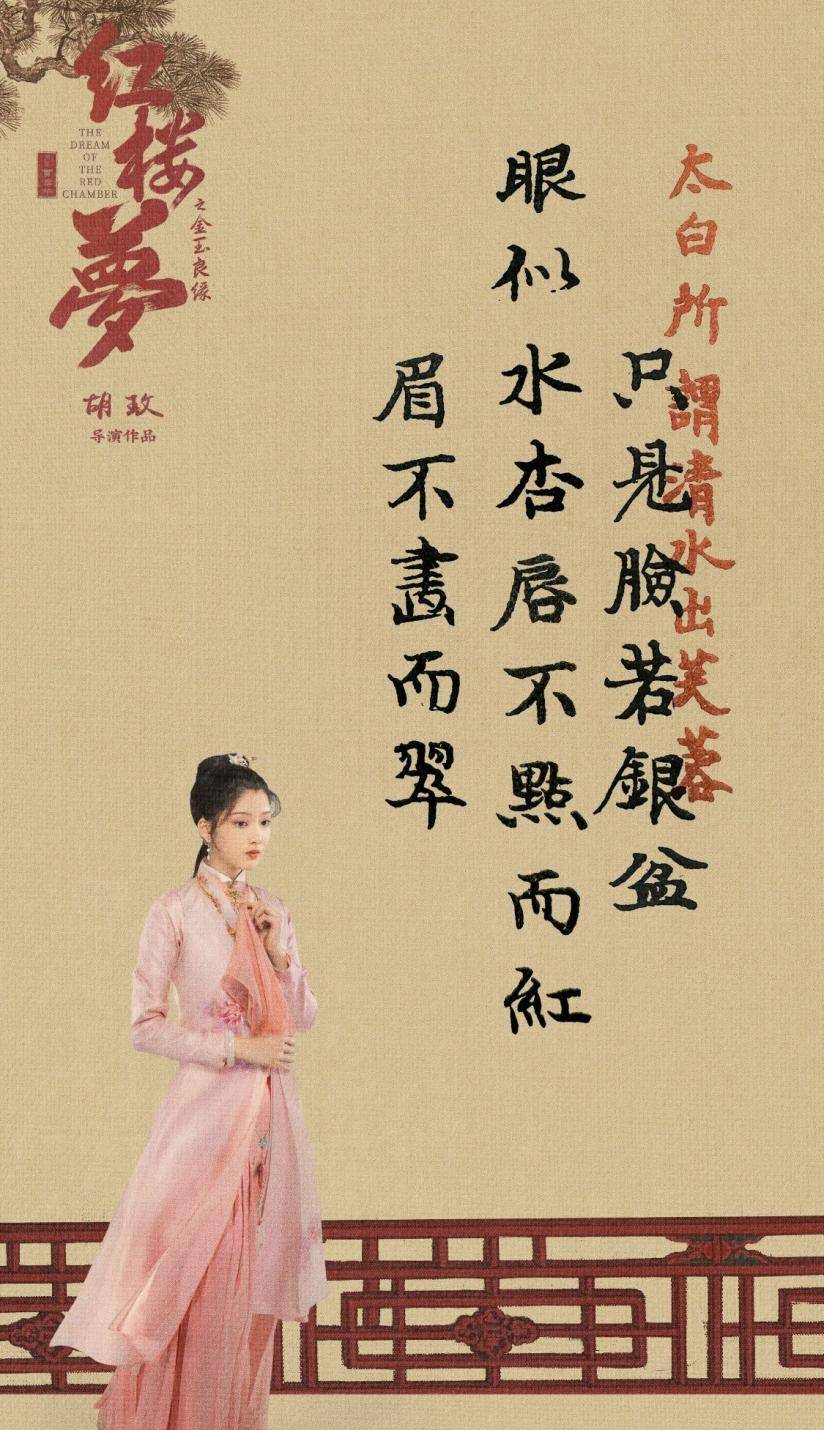 红楼夢
THE
DREAM
OF
THE
RED
CHAMBER
之金玉良缘
胡玫
导演作品
太白所謂清水出芙蓉
只見臉若銀盆
眼似水杏唇不點而紅
眉不畫而翠